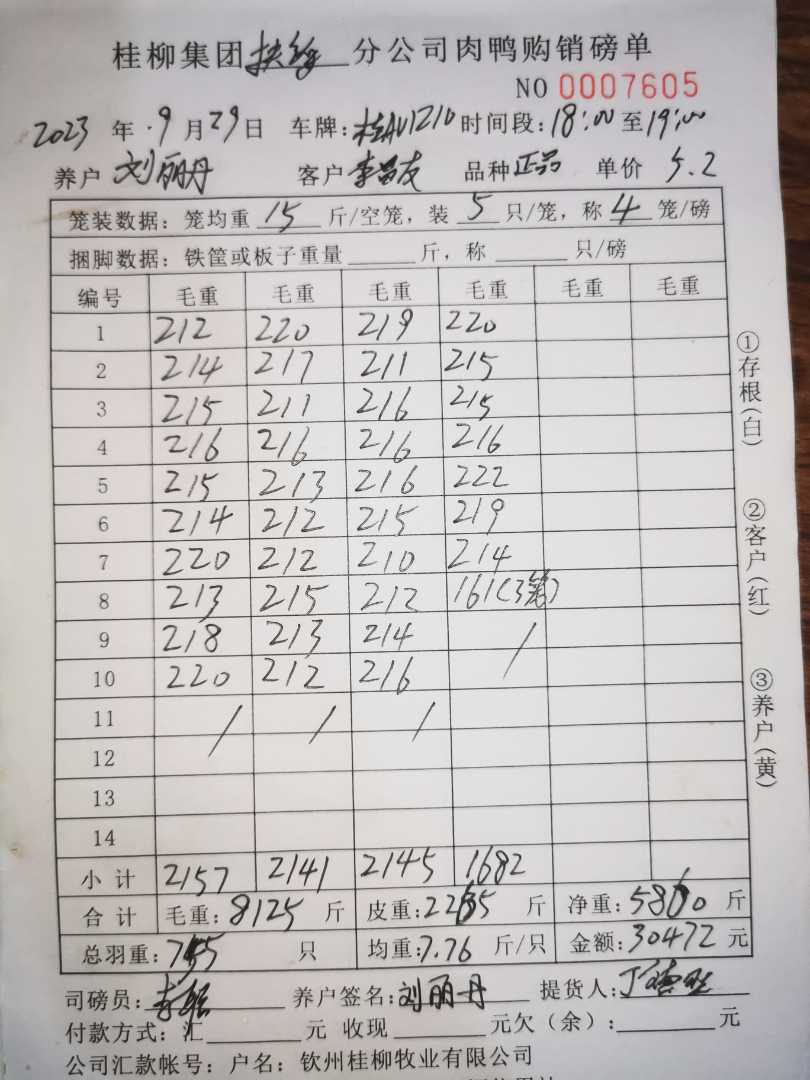 桂柳集团扶绥分公司肉鸭购销磅单
NO 0007605
2023 年 9 月 29 日 车牌:桂AU1210 时间段:18:00 至 19:00
养户 刘丽丹 客户 李昌友 品种 正品 单价 5.2
笼装数据:笼均重 15 斤/空笼,装 5 只/笼,称 4 笼/磅
捆脚数据:铁筐或板子重量______斤,称______只/磅
编号 毛重 毛重 毛重 毛重 毛重 毛重
1 212 220 219 220
2 214 217 211 215
3 215 211 216 215
4 216 216 216 216
5 215 213 216 222
6 214 212 215 219
7 220 212 210 214
8 213 215 212 161(3笼)
9 218 213 214 /
10 220 212 216
11 / / /
12
13
14
小计 2157 2141 2145 1682
合计 毛重:8125 斤 皮重:2265 斤 净重:5860 斤
总羽重:755 只 均重:7.76 斤/只 金额:30472 元
司磅员: 养户签名:刘丽丹 提货人:
付款方式:汇______元 收现______元欠(余):______元
公司汇款帐号:户名:钦州桂柳牧业有限公司
①存根(白)
②客户(红)
③养户(黄)